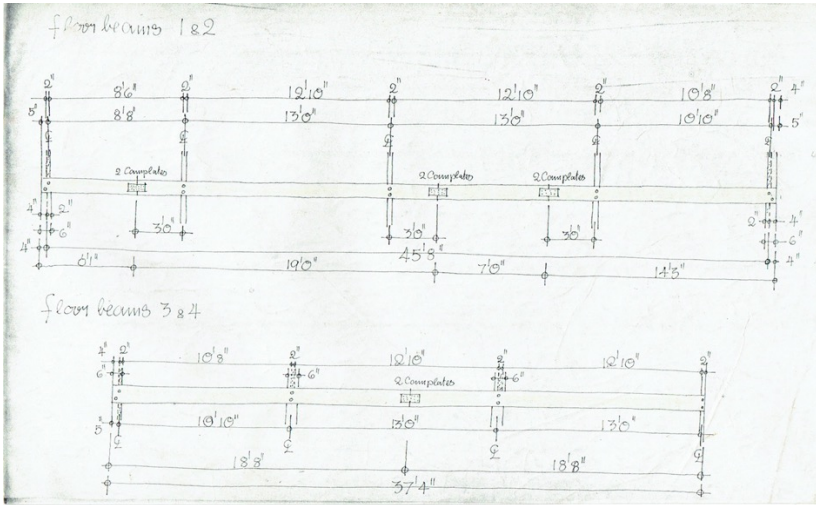 floor beams 1 & 2
2" 8'6" 2" 12'10" 2" 12'10" 2" 10'8" 2" 4"
5" 8'8" 13'0" 13'0" 10'10" 5"
℄ ℄ ℄ ℄ ℄
2 Connplates 2 Connplates 2 Connplates
4" 2" 2" 4"
6" 3'0" 3'0" 3'0" 6"
4" 45'8" 4"
6'1" 19'0" 7'0" 14'3"
floor beams 3 & 4
4" 2" 10'8" 2" 12'10" 2" 12'10" 2"
6" 6" 2 Connplates 6"
5" 10'10" 13'0" 13'0"
℄ ℄ ℄ ℄
18'8" 18'8"
37'4"